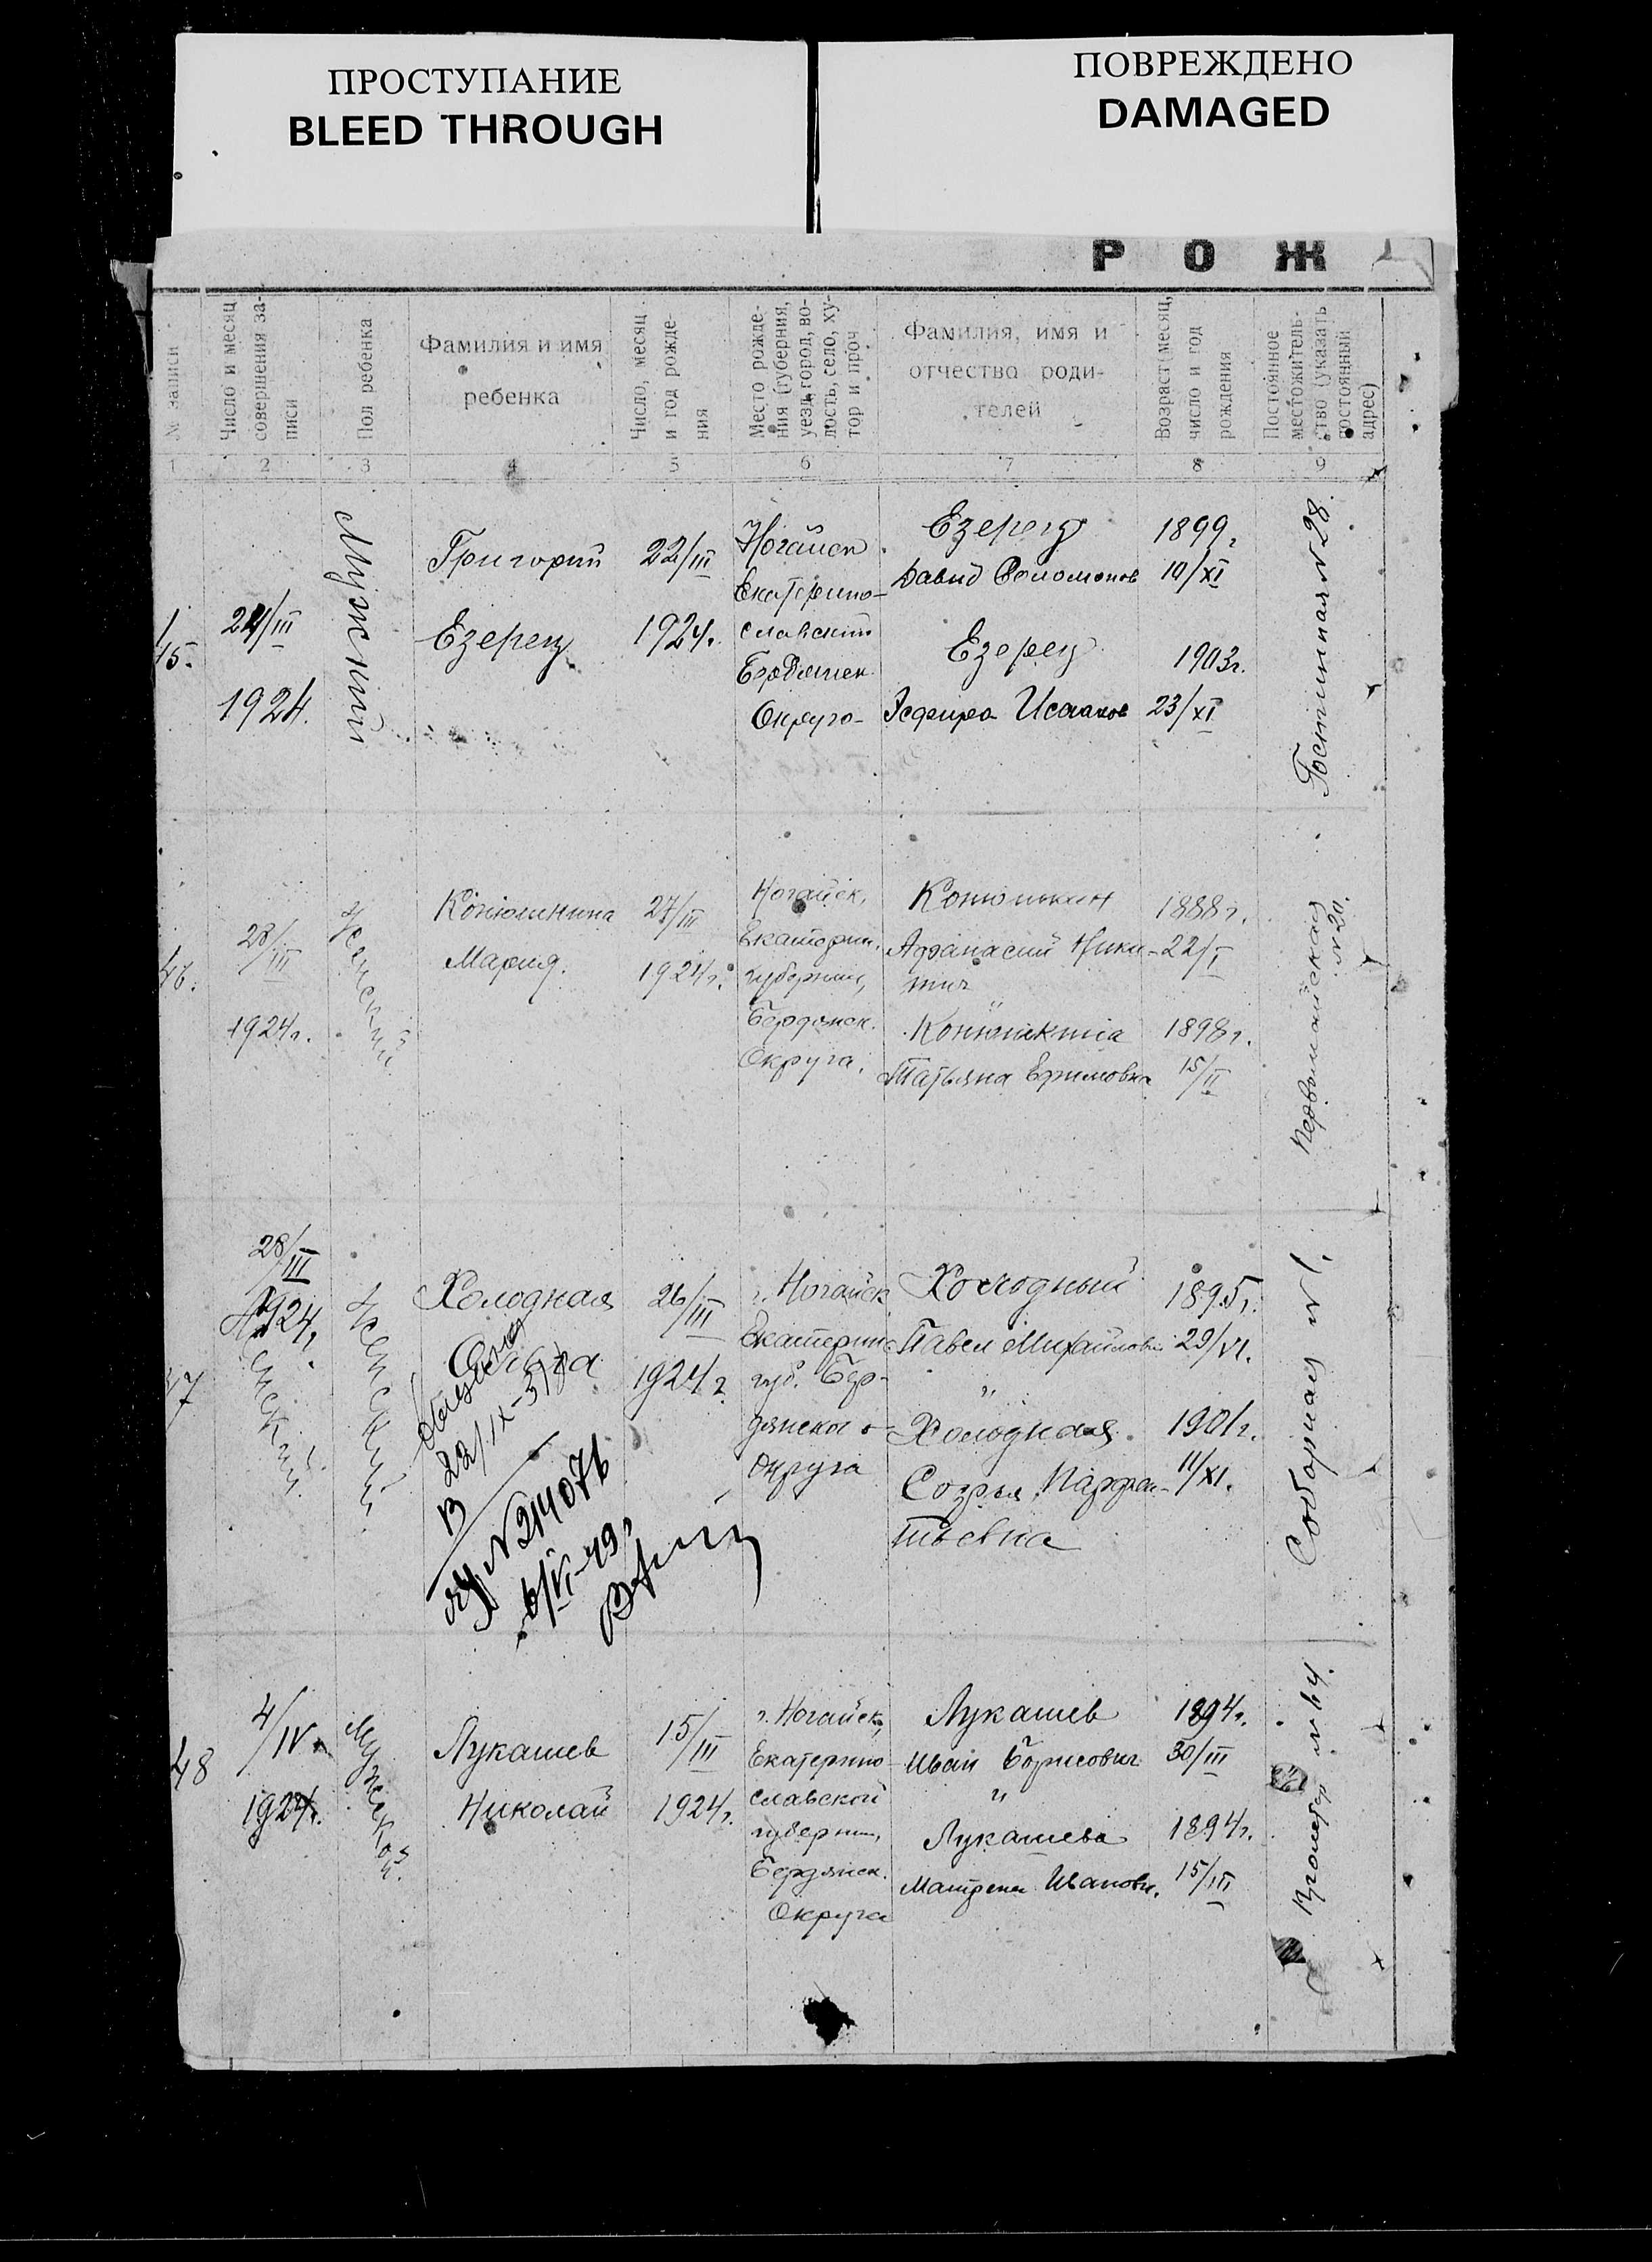 ПРОСТУПАНИЕ
BLEED THROUGH
ПОВРЕЖДЕНО
DAMAGED
Р О Ж
№ записи
Число и месяц
совершения за-
писи
Пол ребенка
Фамилия и имя
ребенка
Число, месяц
и год рожде-
ния
Место рожде-
ния (губерния,
уезд, город, во-
лость, село, ху-
тор и проч
Фамилия, имя и
отчество роди-
телей
Возраст (месяц,
число и год
рождения
Постоянное
местожитель-
ство (указать
постоянный
адрес)
1 2 3 4 5 6 7 8 9
45.
24/III
1924.
Григорий
Езерец
22/III
1924г.
Ногайск
Екатерино-
славский
Бердянск
Округа
Езерец
Давид Соломонов
Езерец
Эсфира Исааков
1899г
10/XI
1903г.
23/XI
Гостинная № 28.
46.
28/III
1924г.
Женский
Конюшкина
Мария.
27/III
1924г.
Ногайск,
Екатерин.
губернии,
Бердянск.
Округа.
Конюшкин
Афанасий Ники-
тич
"
Конюшкина
Татьяна Ефимовна
1888г.
22/I
1898г.
15/II
Первомайская
№ 20.
47
28/III
1924г.
Женский.
Женский.
Холодная
Ольга
22/IX-51
№ 214076
6/VI-49г
26/III
1924г
г. Ногайск
Екатерин.
губ. Бер-
дянского
округа
Холодный
Павел Михайлович
"
Холодная
Софья Парфен-
тьевна
1895г.
29/VI.
1901г.
11/XI.
Соборная № 1.
48
4/IV
1924г.
Мужской.
Лукашев
Николай
15/III
1924г.
г. Ногайск,
Екатерино-
славской
губернии,
Бердянск.
Округа
Лукашев
Иван Борисович
"
Лукашева
Матрена Ивановн.
1894г.
30/III
1894г.
15/III